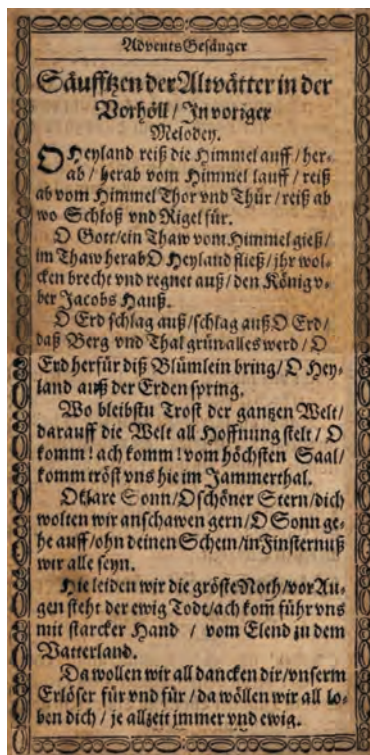 AdventsGesänger
Säufftzen der Altvätter in der
Vorhöll / In voriger
Melodey.
O Heyland reiß die Himmel auff / her⸗
ab / herab vom Himmel lauff / reiß
ab vom Himmel Thor vnd Thür / reiß ab
wo Schloß vnd Rigel für.
O Gott / ein Thaw vom Himmel gieß /
im Thaw herab O Heyland fließ / jhr wol⸗
cken brecht vnd regnet auß / den König v⸗
ber Jacobs Hauß.
O Erd schlag auß / schlag auß O Erd /
daß Berg vnd Thal grün alles werd / O
Erd herfür diß Blümlein bring / O Hey⸗
land auß der Erden spring.
Wo bleibstu Trost der gantzen Welt /
darauff die Welt all Hoffnung stelt / O
komm ! ach komm ! vom höchsten Saal /
komm tröst vns hie im Jammerthal.
O klare Sonn / O schöner Stern / dich
wolten wir anschawen gern / O Sonn ge⸗
he auff / ohn deinen Schein / in Finsternuß
wir alle seyn.
Hie leiden wir die gröste Noth / vor Au⸗
gen steht der ewig Todt / ach kom führ vns
mit starcker Hand / vom Elend zu dem
Vatterland.
Da wollen wir all dancken dir / vnserm
Erlöser für vnd für / da wöllen wir all lo⸗
ben dich / je allzeit jmmer vnd ewig.